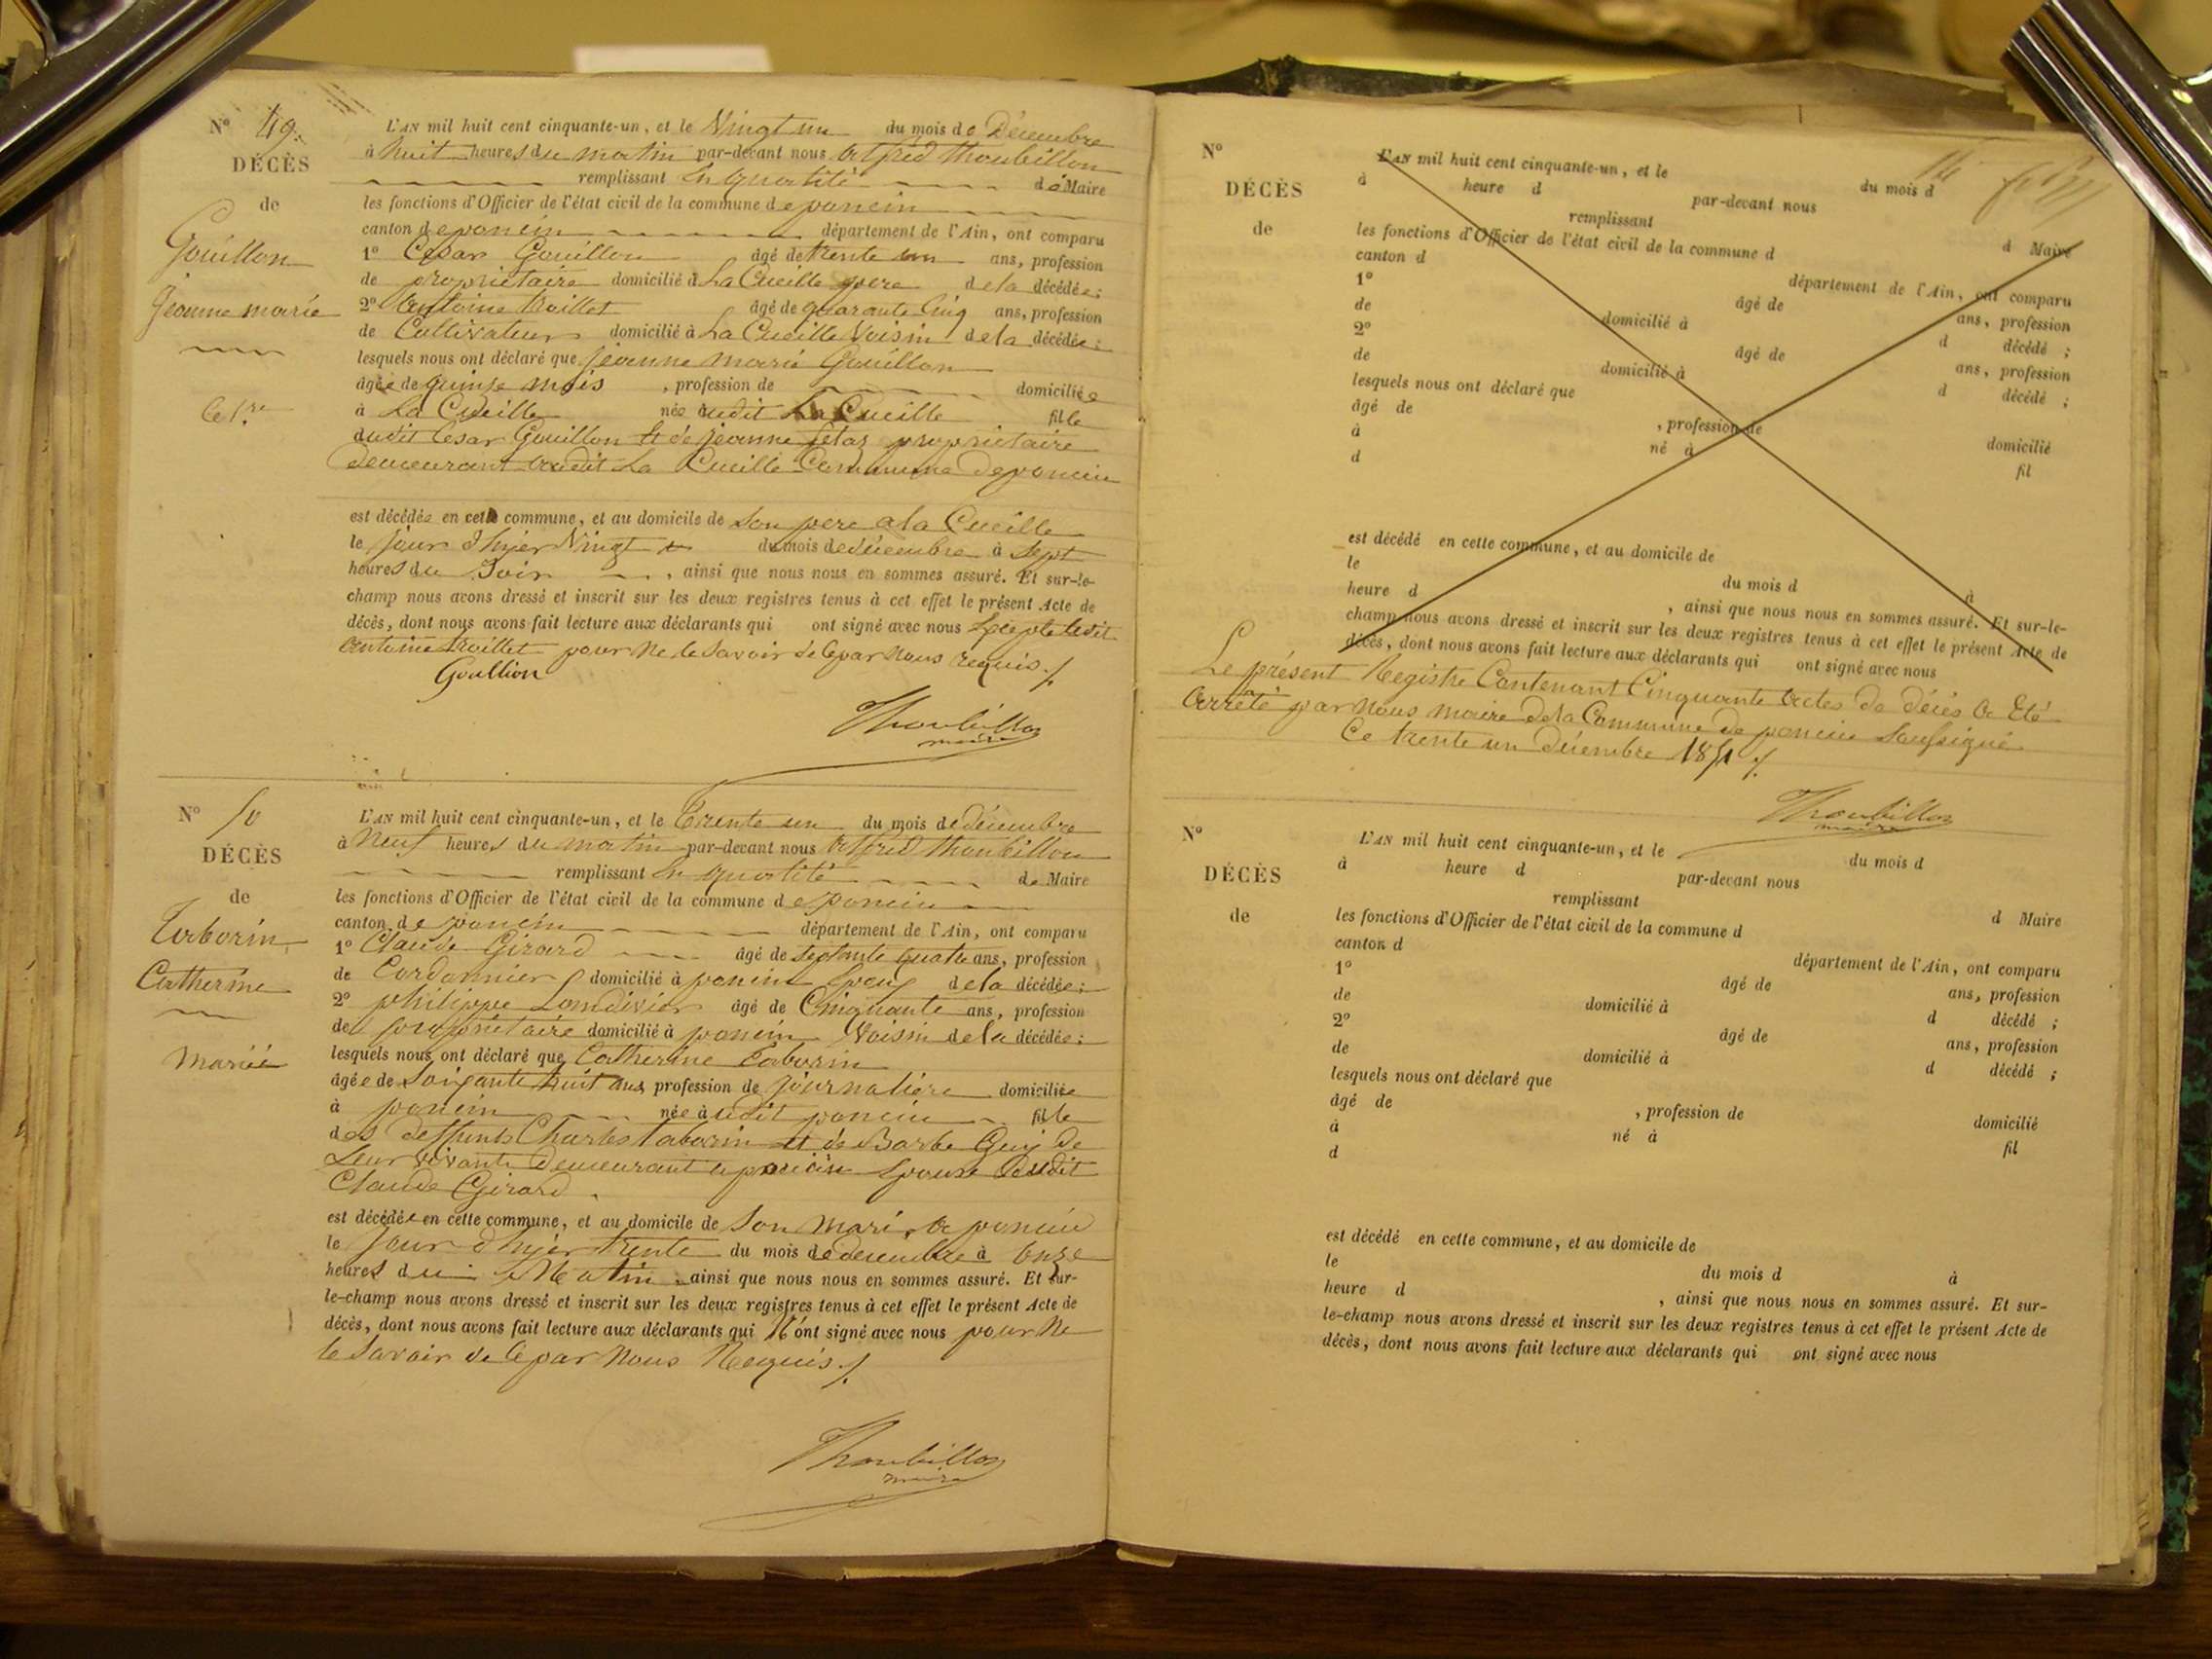 N° 49.
DÉCÈS
de
Gouillon
Jeanne marie
Cet.re
L'AN mil huit cent cinquante-un, et le Vingt un du mois de Décembre
à huit heures du matin par-devant nous Alfred Thoubillon
remplissant en qualité de Maire
les fonctions d'Officier de l'état civil de la commune de poncin
canton de poncin département de l'Ain, ont comparu
1° Cesar Gouillon âgé de trente un ans, profession
de propriétaire domicilié à La Cueille pere de la décédée;
2° Antoine Troillet âgé de quarante Cinq ans, profession
de Cultivateur domicilié à La Cueille Voisin de la décédée;
lesquels nous ont déclaré que jeanne marie Gouillon
âgée de quinze mois , profession de domiciliée
à La Cueille née audit La Cueille fille
dudit Cesar Gouillon Et de jeanne propriétaire
demeurant audit La Cueille Commune de poncin
est décédée en cette commune, et au domicile de Son pere a la Cueille
le jour d'hier Vingt du mois de décembre à Sept
heures du Soir , ainsi que nous nous en sommes assuré. Et sur-le-
champ nous avons dressé et inscrit sur les deux registres tenus à cet effet le présent Acte de
décès, dont nous avons fait lecture aux déclarants qui ont signé avec nous Excepté ledit
Antoine Troillet pour ne le Savoir de Ce par nous requis ./.
Goullion
Thoubillon
maire
N° 50
DÉCÈS
de
Taborin
Catherine
Mariée
L'AN mil huit cent cinquante-un, et le Trente un du mois de décembre
à Neuf heures du matin par-devant nous Alfred Thoubillon
remplissant En qualité de Maire
les fonctions d'Officier de l'état civil de la commune de poncin
canton de poncin département de l'Ain, ont comparu
1° Claude Girard âgé de Septante quatre ans, profession
de Cordonnier domicilié à poncin Epoux de la décédée;
2° philippe Londivier âgé de Cinquante ans, profession
de propriétaire domicilié à poncin Voisin de la décédée;
lesquels nous ont déclaré que Catherine Taborin
âgée de Soixante huit ans, profession de journalière domiciliée
à poncin née audit poncin fille
des deffunts Charles Taborin et de Barbe Guy de
Leur vivants demeurant a poncin Epouse dudit
Claude Girard.
est décédée en cette commune, et au domicile de Son mari, a poncin
le jour d'hier trente du mois de decembre à onze
heures du Matin , ainsi que nous nous en sommes assuré. Et sur-
le-champ nous avons dressé et inscrit sur les deux registres tenus à cet effet le présent Acte de
décès, dont nous avons fait lecture aux déclarants qui N'ont signé avec nous pour Ne
le Savoir de Ce par Nous Requis ./.
Thoubillon
maire
N°
DÉCÈS
de
L'AN mil huit cent cinquante-un, et le du mois d
à heure d par-devant nous
remplissant d Maire
les fonctions d'Officier de l'état civil de la commune d
canton d département de l'Ain, ont comparu
1° âgé de ans, profession
de domicilié à d décédé ;
2° âgé de ans, profession
de domicilié à d décédé ;
lesquels nous ont déclaré que
âgé de , profession de domicilié
à né à fil
d
est décédé en cette commune, et au domicile de
le du mois d à
heure d , ainsi que nous nous en sommes assuré. Et sur-le-
champ nous avons dressé et inscrit sur les deux registres tenus à cet effet le présent Acte de
décès, dont nous avons fait lecture aux déclarants qui ont signé avec nous
Le présent Registre Contenant Cinquante Actes de décès a Eté
Arrêté par Nous maire de la Commune de poncin Soussigné
Ce trente un Décembre 1851 ./.
Thoubillon
maire
N°
DÉCÈS
de
L'AN mil huit cent cinquante-un, et le du mois d
à heure d par-devant nous
remplissant d Maire
les fonctions d'Officier de l'état civil de la commune d
canton d département de l'Ain, ont comparu
1° âgé de ans, profession
de domicilié à d décédé ;
2° âgé de ans, profession
de domicilié à d décédé ;
lesquels nous ont déclaré que
âgé de , profession de domicilié
à né à fil
d
est décédé en cette commune, et au domicile de
le du mois d à
heure d , ainsi que nous nous en sommes assuré. Et sur-
le-champ nous avons dressé et inscrit sur les deux registres tenus à cet effet le présent Acte de
décès, dont nous avons fait lecture aux déclarants qui ont signé avec nous